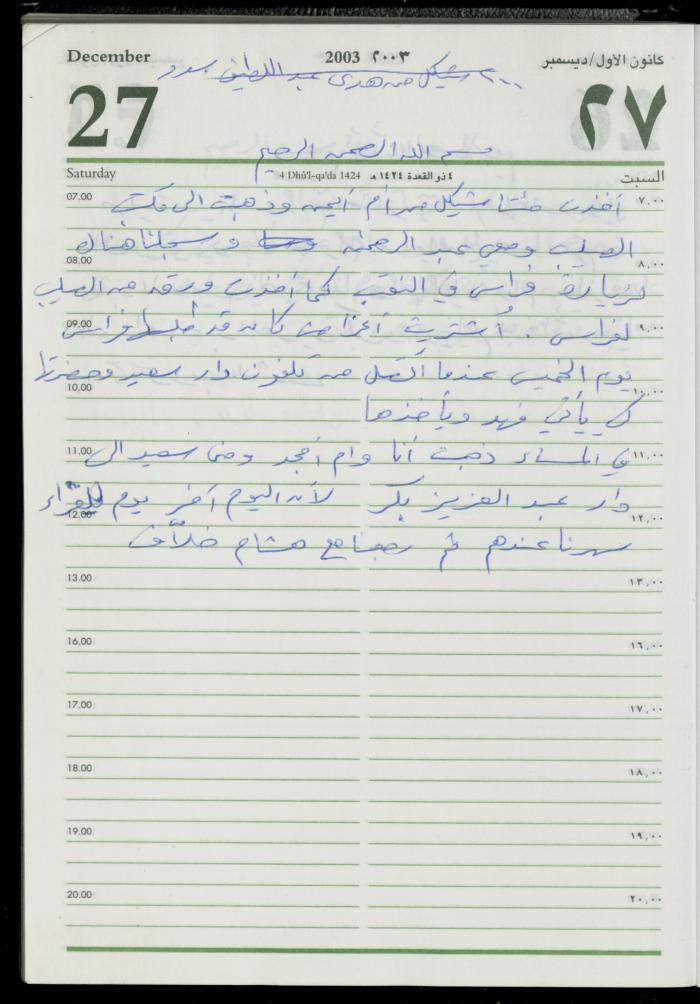 December 2003 ٢٠٠٣ كانون الاول/ديسمبر
٢٠٠ شيكل من هدى عبد اللطيف
27 ٢٧
بسم الله الرحمن الرحيم
Saturday 4 Dhû'l-qa'da 1424 ٤ ذو القعدة ١٤٢٤ هـ السبت
07.00 أخذت مئتا شيكل من أم أيمن وذهبت الى مكتب ٧,٠٠
الصليب ومعي عبد الرحمن وسجلنا هناك
08.00 ٨,٠٠
لزيارة فراس في النقب كما أخذت ورقة من الصليب
09.00 لفراس . أشتريت أغراض كان قد طلبها فراس ٩,٠٠
يوم الخميس عندما أتصل من تلفون دار سعيد وحضرتها
10.00 ١٠,٠٠
كي يأتي فهد ويأخذها
11.00 في المساء ذهبت أنا وام أمجد ومنى سعيد الى ١١,٠٠
دار عبد العزيز بكر لأن اليوم آخر يوم للعزاء
12.00 ١٢,٠٠
سهرنا عندهم ثم رجعنا مع هشام خلاّف
13.00 ١٣,٠٠
16.00 ١٦,٠٠
17.00 ١٧,٠٠
18.00 ١٨,٠٠
19.00 ١٩,٠٠
20.00 ٢٠,٠٠